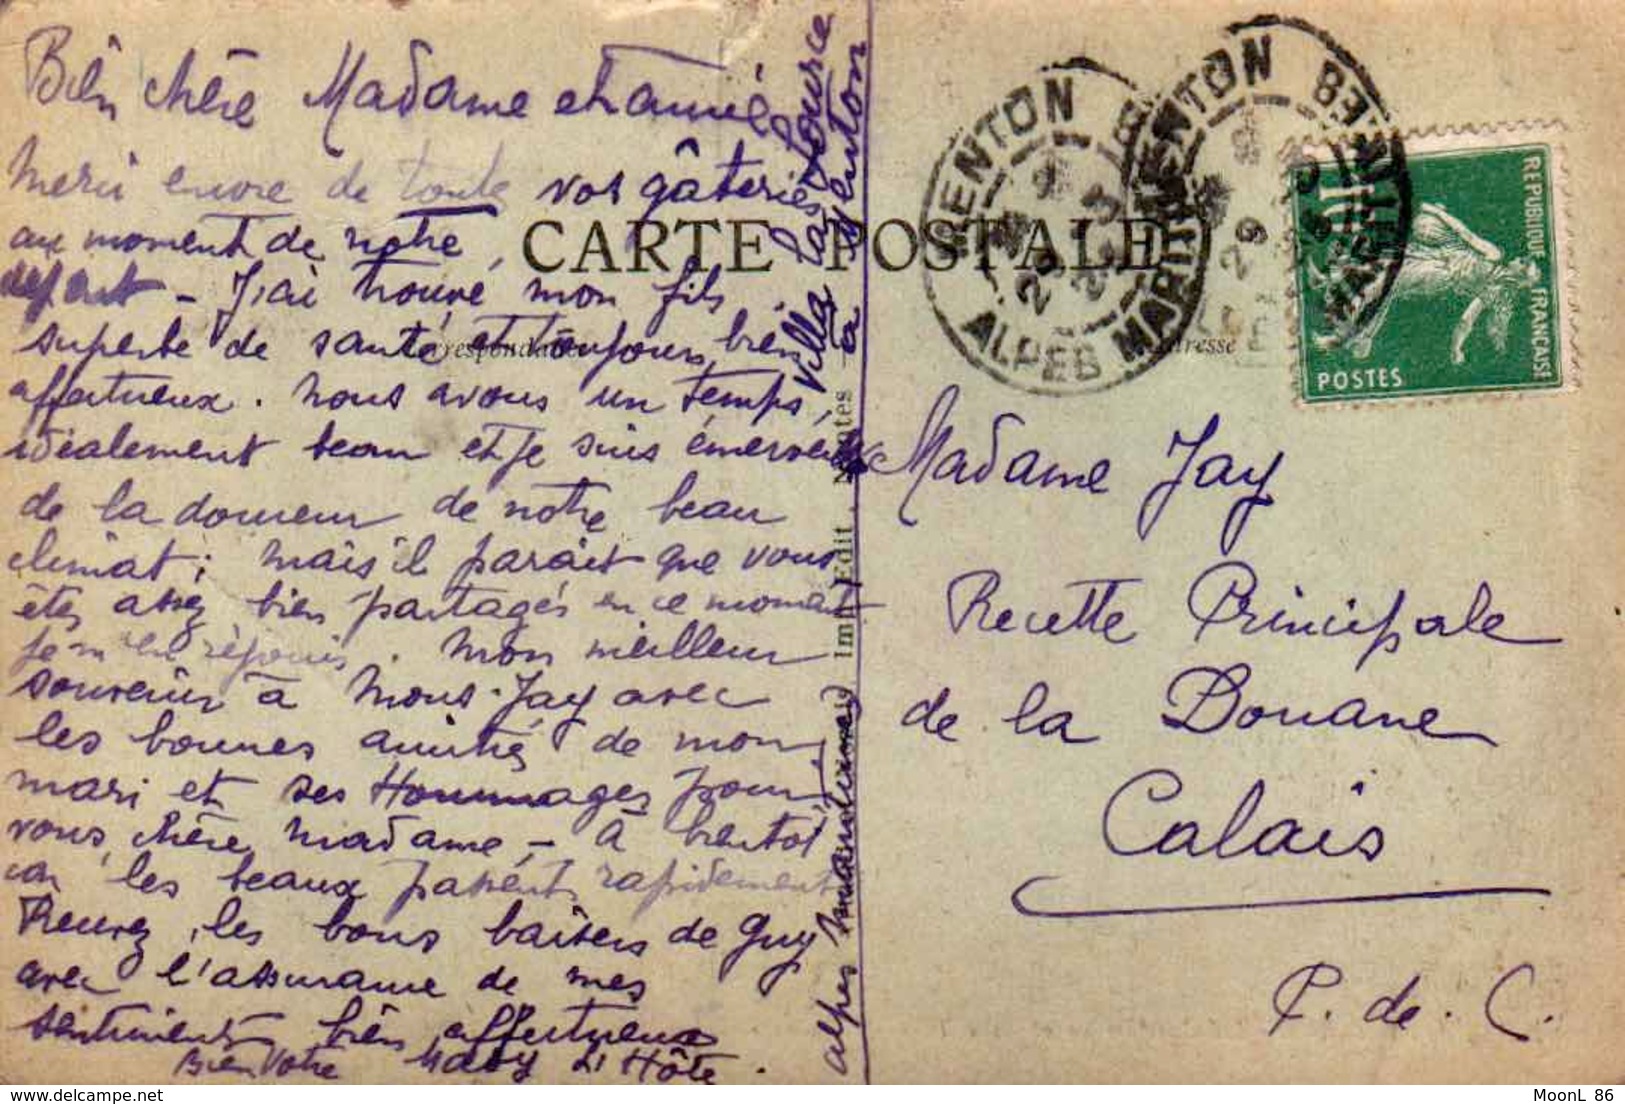 Bien chère Madame et amie
Merci encore de toute vos gâteries
au moment de notre
départ - J'ai trouvé mon fils
superbe de santé et toujours bien
affectueux. Nous avons un temps
idéalement beau et je suis émerveillée
de la douceur de notre beau
climat; mais il parait que vous
êtes assez bien partagés en ce moment
je m'en réjouis. Mon meilleur
souvenir à Mons. Jay avec
les bonnes amitiés de mon
mari et ses Hommages pour
vous, chère Madame, - à bientôt
car les beaux passent rapidement
Recevez, les bons baisers de Guy
avec l'assurance de mes
sentiments bien affectueux
Bien Votre L'Hôte.
Villa la Source
à Menton
alpes maritimes
CARTE POSTALE
Correspondance
Adresse
Imp. Edit. Nantes
MENTON
ALPES MARITIMES
MENTON
ALPES MARITIMES
REPUBLIQUE FRANÇAISE
10
POSTES
Madame Jay
Recette Principale
de la Douane
Calais
P. de. C.
MoonL 86